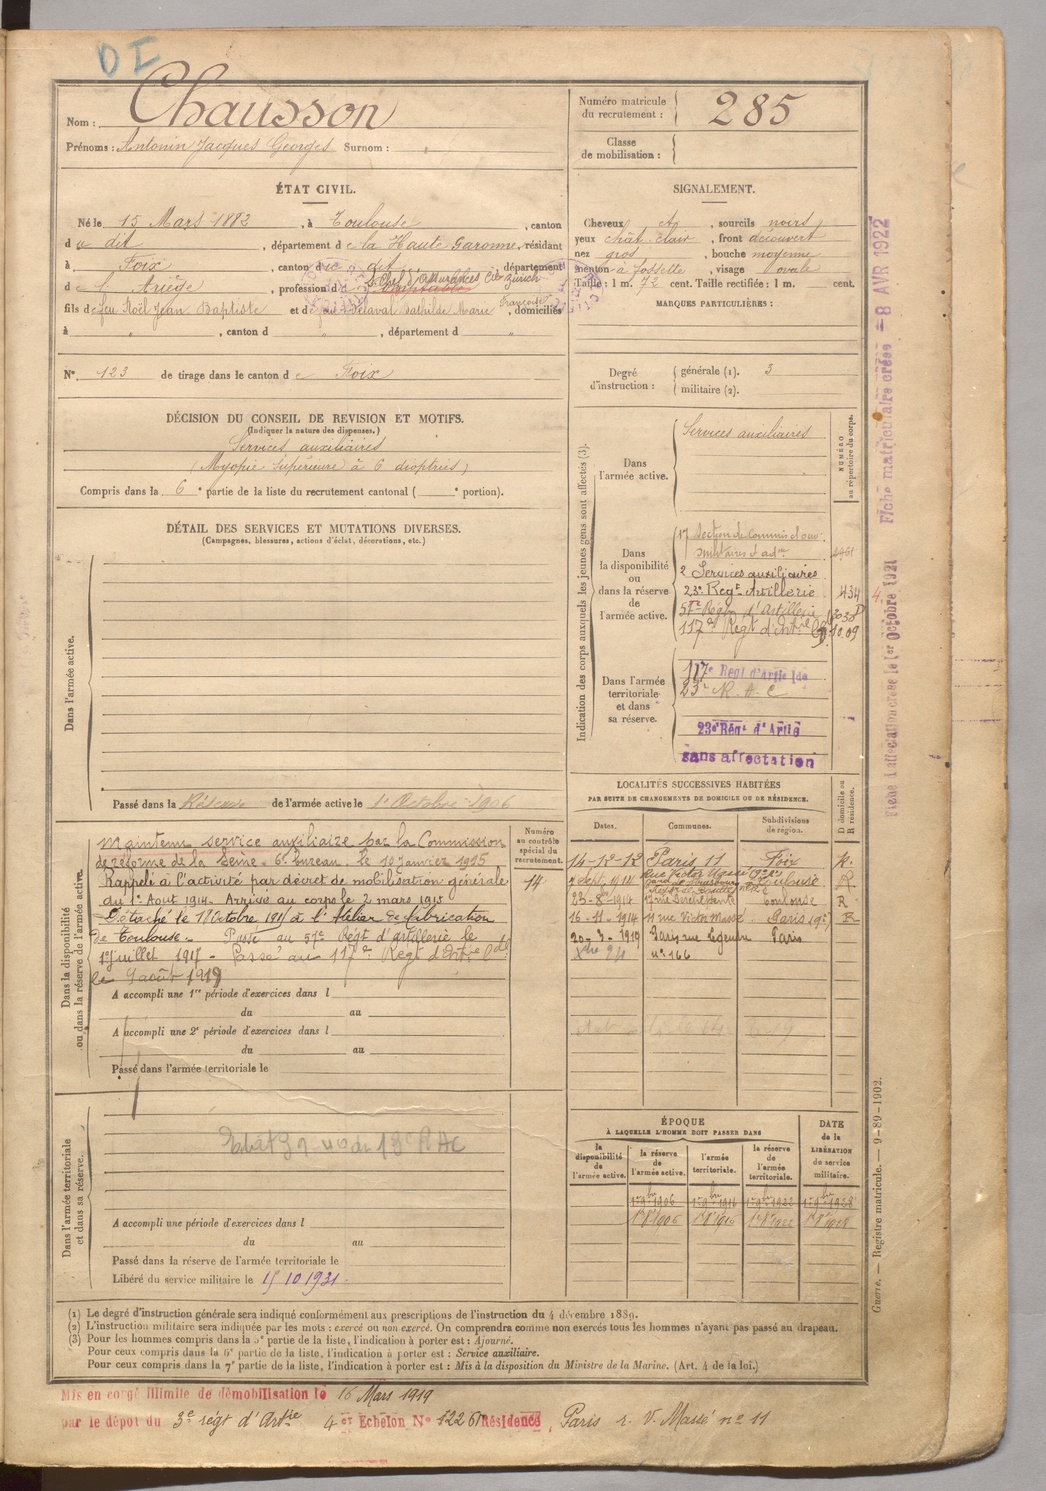 Nom : Chausson
Prénoms : Antonin Jacques Georges Surnom :
Numéro matricule du recrutement : 285
Classe de mobilisation :
ÉTAT CIVIL.
Né le 15 Mars 1882, à Toulouse, canton
du dit, département de la Haute Garonne, résidant
à Foix, canton du dit, département
de l'Ariège, profession de S. Chef d'Assurances Cie Zürich
fils de feu Noël Jean Baptiste et de Delaval Bathilde Marie Françoise, domiciliés
à , canton d , département d
N° 123 de tirage dans le canton de Foix
SIGNALEMENT.
Cheveux ch, sourcils noirs
yeux chât. clair, front découvert
nez gros, bouche moyenne
menton à fossette, visage ovale
Taille : 1 m. 72 cent. Taille rectifiée : 1 m. cent.
MARQUES PARTICULIÈRES :
Degré d'instruction : générale (1). 3
militaire (2).
DÉCISION DU CONSEIL DE REVISION ET MOTIFS.
(Indiquer la nature des dispenses.)
Services auxiliaires
(Myopie supérieure à 6 dioptries)
Compris dans la 6e partie de la liste du recrutement cantonal ( e portion).
DÉTAIL DES SERVICES ET MUTATIONS DIVERSES.
(Campagnes, blessures, actions d'éclat, décorations, etc.)
Dans l'armée active.
Passé dans la Réserve de l'armée active le 1er Octobre 1906
Indication des corps auxquels les jeunes gens sont affectés (3).
NUMÉRO au répertoire du corps.
Dans l'armée active.
Services auxiliaires
Dans la disponibilité ou dans la réserve de l'armée active.
17 Section de Commis et ouv.
militaires d'adm
2 Services auxiliaires
23e Regt Artillerie 434
57e Regim d'Artillerie
117e Regt d'Artrie Lde 1009
Dans l'armée territoriale et dans sa réserve.
117e Regt d'Artie Lde
23e R. A. C
23e Régt d'Artie
sans affectation
Dans la disponibilité ou dans la réserve de l'armée active.
Numéro au contrôle spécial du recrutement.
14
Maintenu service auxiliaire par la Commission
de réforme de la Seine 6e bureau le 19 janvier 1915
Rappelé à l'activité par décret de mobilisation générale
du 1er Aout 1914. Arrivé au corps le 2 mars 1915
Détaché le 1er Octobre 1915 à l'Atelier de fabrication
de Toulouse. Passé au 57e Régt d'artillerie le
1er juillet 1917 - Passé au 117e Regt d'Artrie Lde
le 9 août 1919
A accompli une 1re période d'exercices dans l
du au
A accompli une 2e période d'exercices dans l
du au
Passé dans l'armée territoriale le
LOCALITÉS SUCCESSIVES HABITÉES
PAR SUITE DE CHANGEMENTS DE DOMICILE OU DE RÉSIDENCE.
Dates. Communes. Subdivisions de région. D domicile ou R résidence.
14-12-12 Paris 11 Foix R.
Toulouse R
23-8-1914 Toulouse R
16-11-1914 11 rue Victor Massé Paris (9e) R
20-3-1919 Paris rue Legendre Paris
n° 166
ÉPOQUE
À LAQUELLE L'HOMME DOIT PASSER DANS
DATE de la LIBÉRATION du service militaire.
la disponibilité de l'armée active. la réserve de l'armée active. l'armée territoriale. la réserve de l'armée territoriale.
Dans l'armée territoriale et dans sa réserve.
A accompli une période d'exercices dans l
du au
Passé dans la réserve de l'armée territoriale le
Libéré du service militaire le 15 10 1931
(1) Le degré d'instruction générale sera indiqué conformément aux prescriptions de l'instruction du 4 décembre 1889.
(2) L'instruction militaire sera indiquée par les mots : exercé ou non exercé. On comprendra comme non exercés tous les hommes n'ayant pas passé au drapeau.
(3) Pour les hommes compris dans la 5e partie de la liste, l'indication à porter est : Ajourné.
Pour ceux compris dans la 6e partie de la liste, l'indication à porter est : Service auxiliaire.
Pour ceux compris dans la 7e partie de la liste, l'indication à porter est : Mis à la disposition du Ministre de la Marine. (Art. 4 de la loi.)
Mis en congé illimité de démobilisation le 16 Mars 1919
par le dépôt du 3e régt d'Artie 4e Echelon N° 1226 Résidence, Paris r. V. Massé n° 11
Guerre. — Registre matricule. — 9-89-1902.
Fiche matriculaire créée — 8 AVR 1922
Fiche d'affectation créée le 1er Octobre 1921